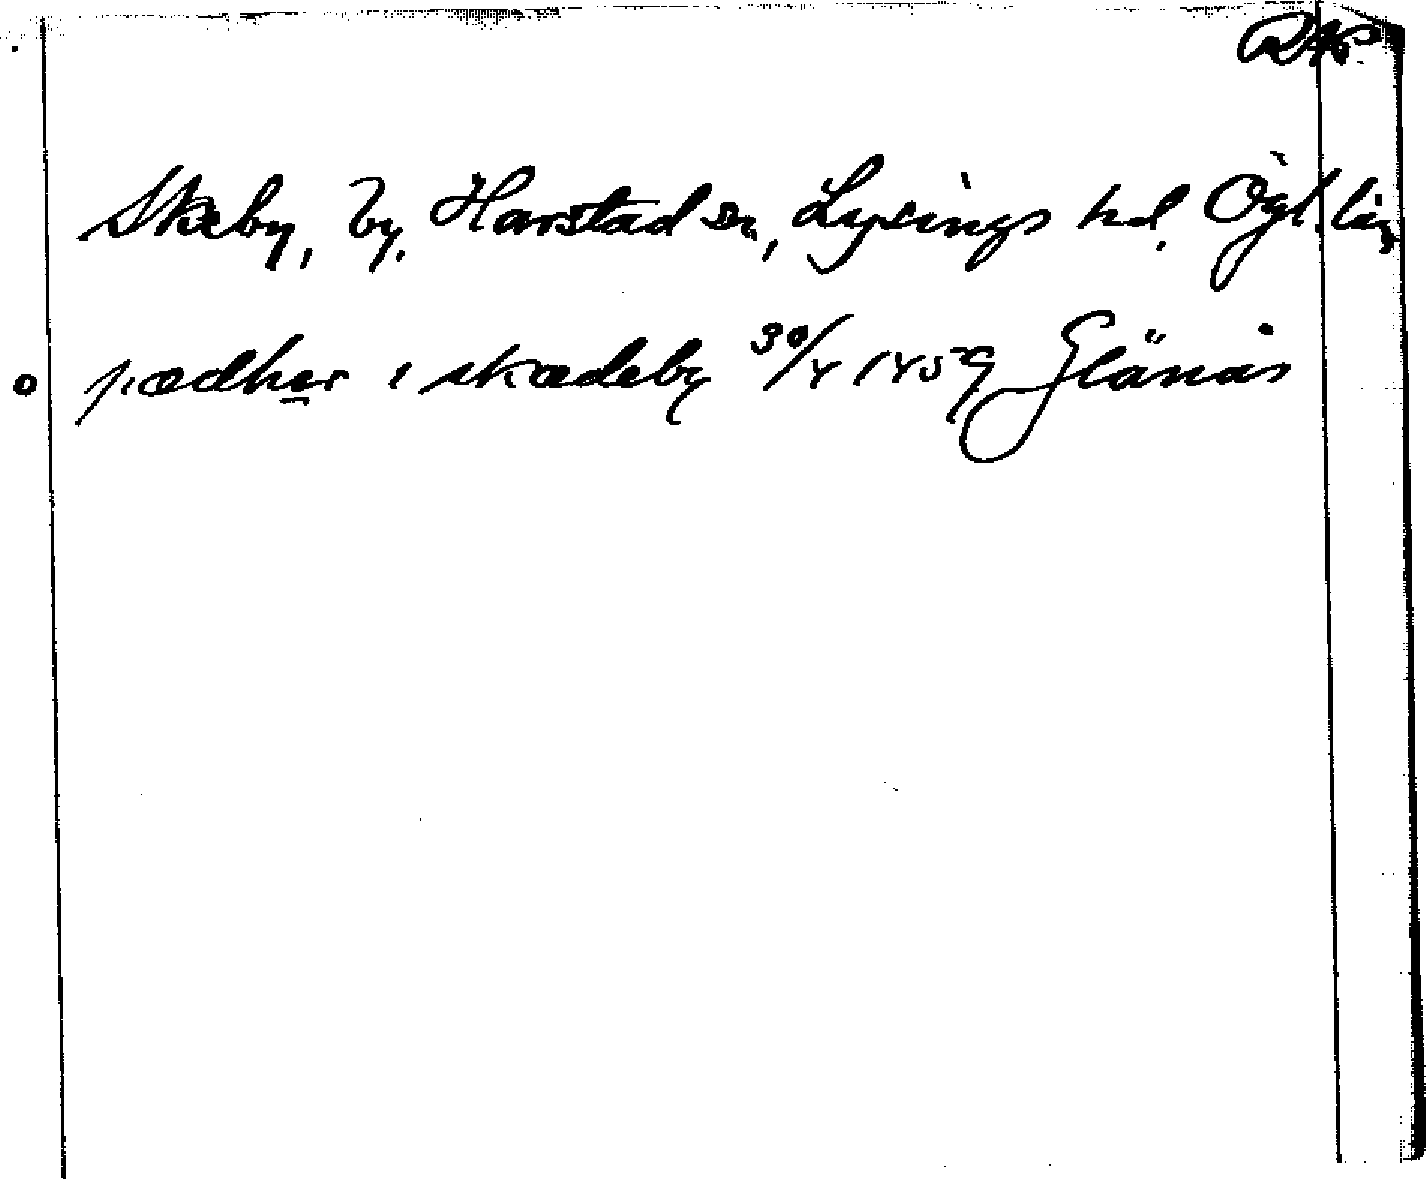 RAP
Skeby, by, Harstad sn, Lysings hd, Ögl. län
o pædher i skædeby 30/4 1459 Glänås